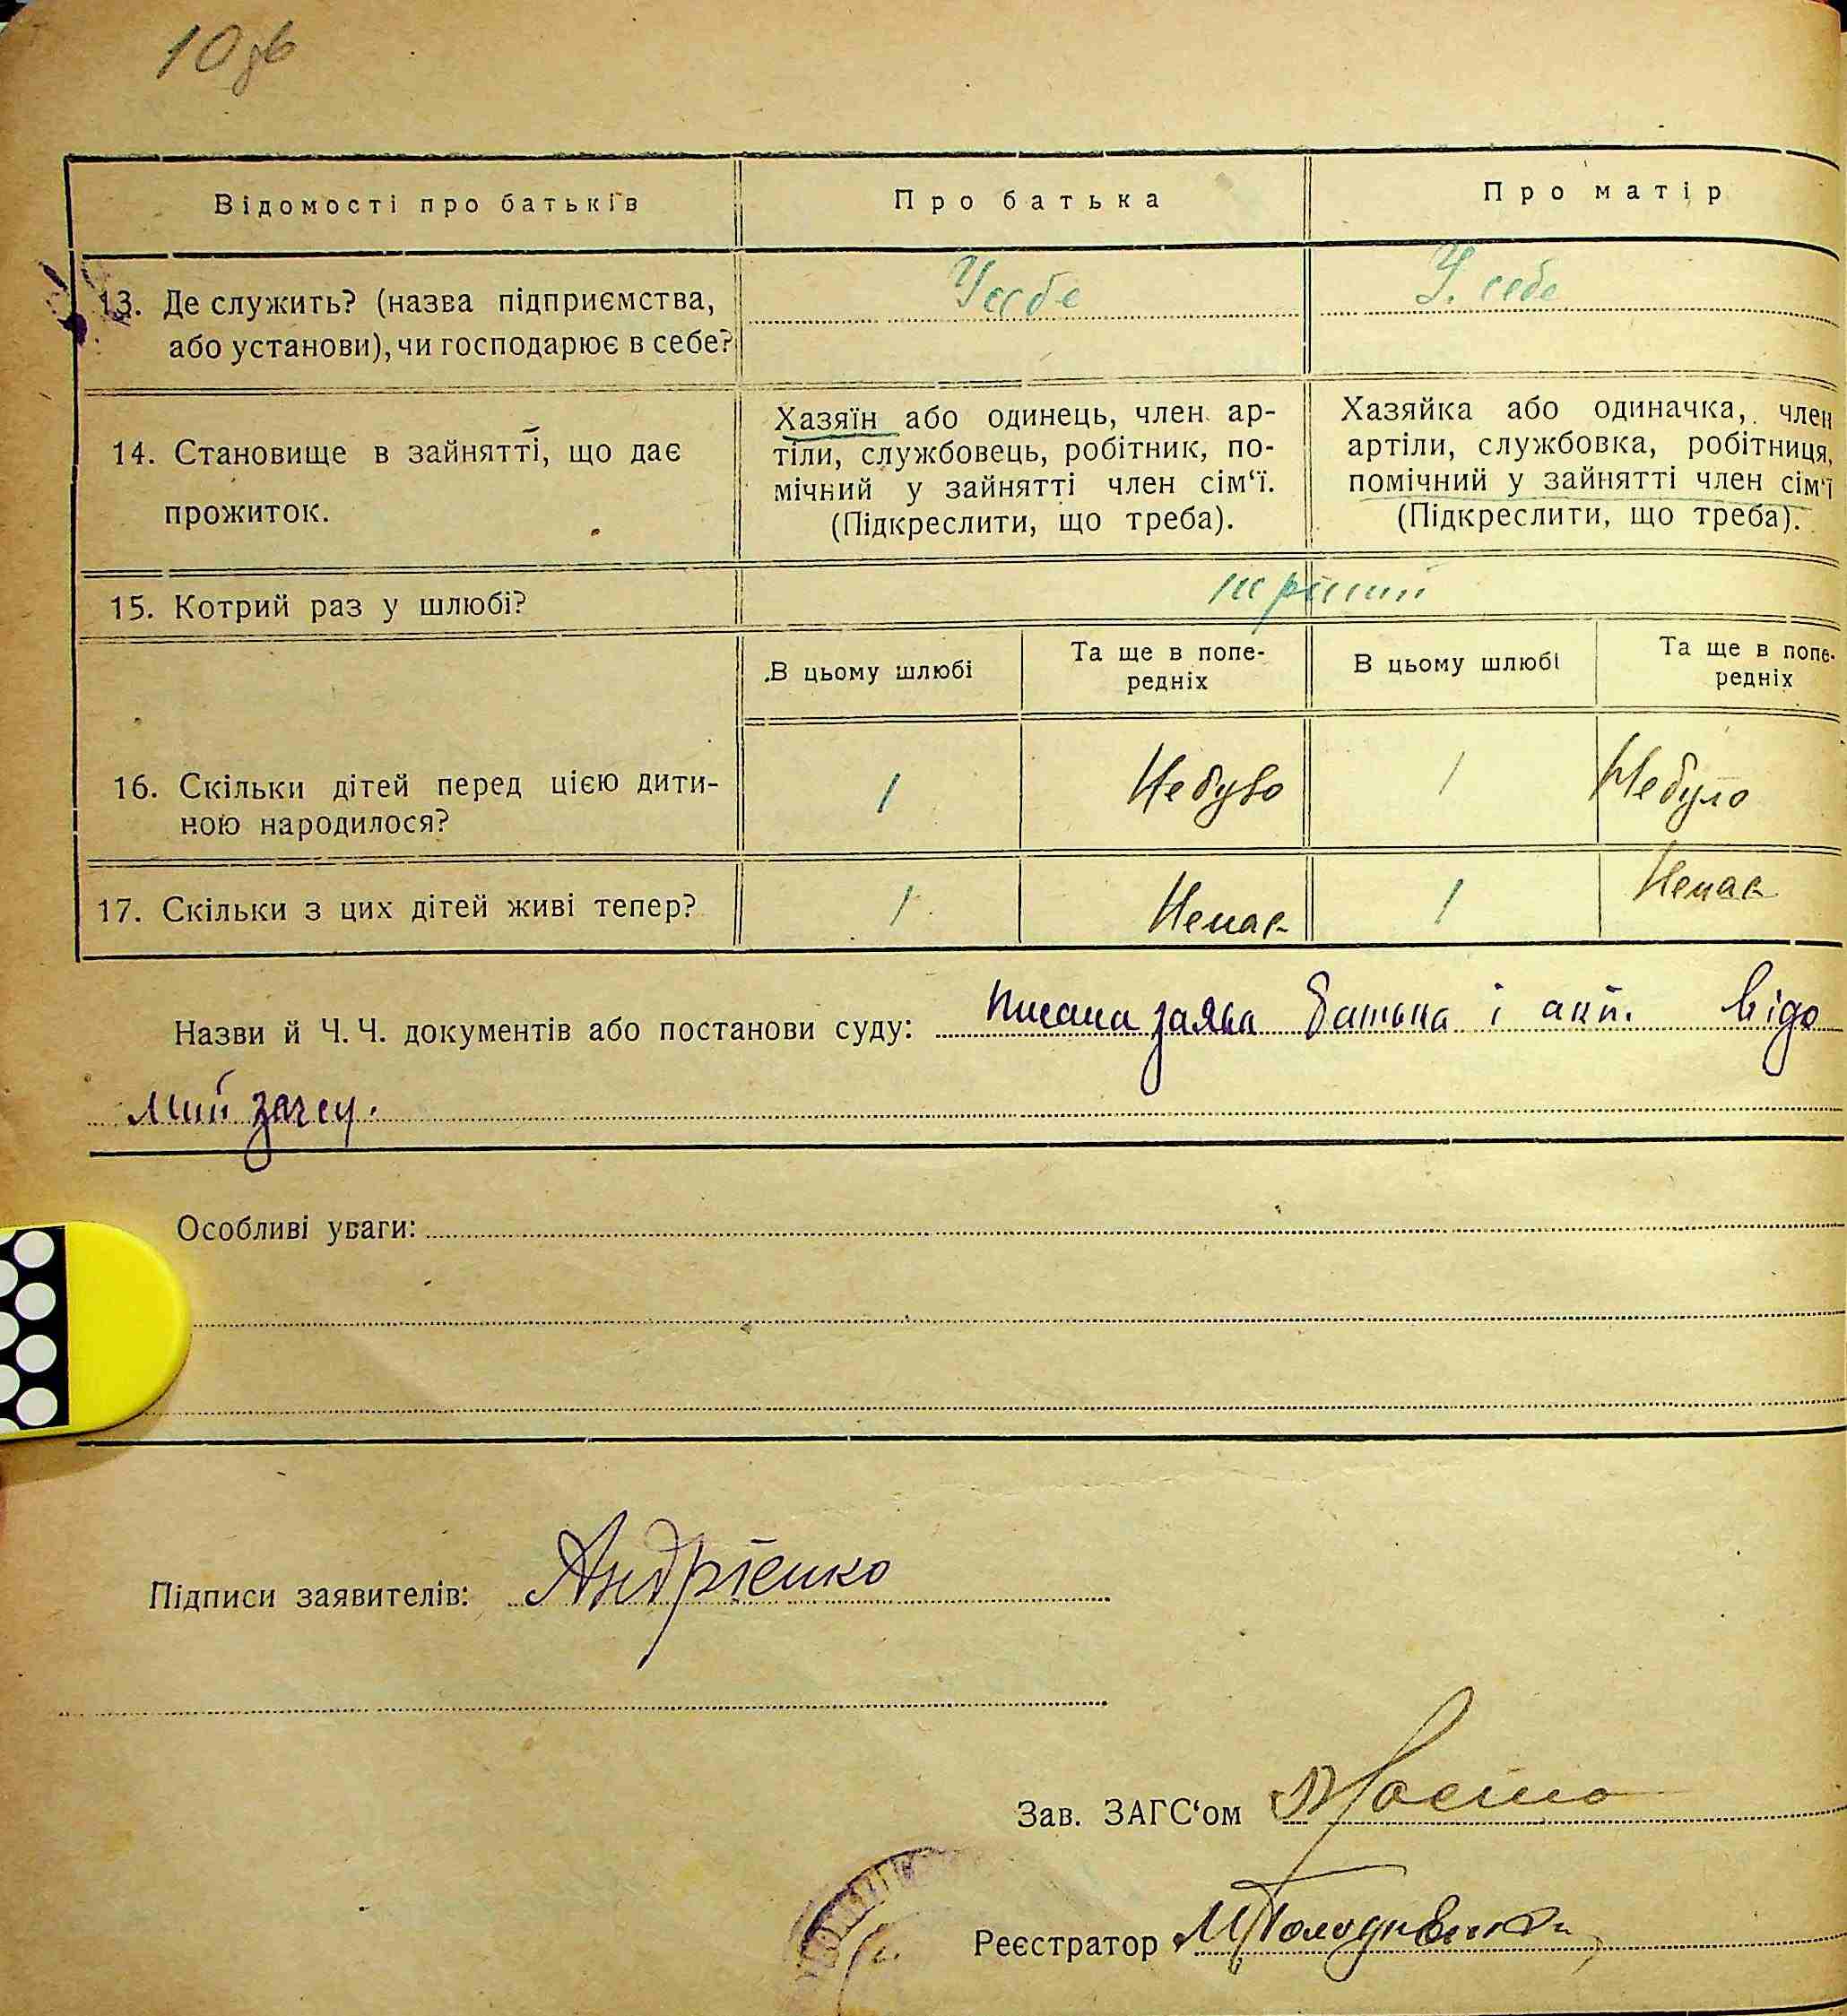 10
Відомості про батьків
Про батька
Про матір
13. Де служить? (назва підприємства,
або установи), чи господарює в себе?
У себе
У. себе
14. Становище в зайнятті, що дає
прожиток.
Хазяїн або одинець, член ар-
тіли, службовець, робітник, по-
мічний у зайнятті член сім‘ї.
(Підкреслити, що треба).
Хазяйка або одиначка, член
артіли, службовка, робітниця,
помічний у зайнятті член сім‘ї
(Підкреслити, що треба).
15. Котрий раз у шлюбі?
перший
В цьому шлюбі
Та ще в попе-
редніх
В цьому шлюбі
Та ще в попе-
редніх
16. Скільки дітей перед цією дити-
ною народилося?
1
Небуло
1
Небуло
17. Скільки з цих дітей живі тепер?
1
Немає
1
Немає
Назви й Ч. Ч. документів або постанови суду: заява батька і акт. відо
мий загсу.
Особливі уваги:
Підписи заявителів: Андрієнко
Зав. ЗАГС‘ом
Реєстратор